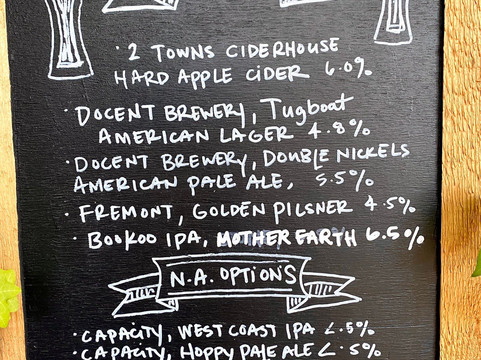 · 2 TOWNS CIDERHOUSE
HARD APPLE CIDER 6.0%
· DOCENT BREWERY, Tugboat
AMERICAN LAGER 4.8%
· DOCENT BREWERY, DOUBLE NICKELS
AMERICAN PALE ALE, 5.5%
· FREMONT, GOLDEN PILSNER 4.5%
· BOOKOO IPA, MOTHER EARTH 6.5%
N.A. OPTIONS
· CAPACITY, WEST COAST IPA <.5%
· CAPACITY, HOPPY PALE ALE <.5%